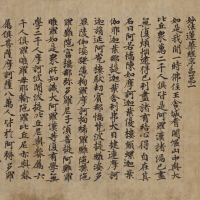 妙法蓮華經序品第一
如是我聞一時佛住王舍城耆闍崛山中與大
比丘眾萬二千人俱皆是阿羅漢諸漏已盡
無復煩惱逮得己利盡諸有結心得自在其
名曰阿若憍陳如摩訶迦葉優樓頻螺迦葉
伽耶迦葉那提迦葉舍利弗大目揵連摩訶
迦旃延阿㝹樓馱劫賓那憍梵波提離婆多
畢陵伽婆蹉薄拘羅摩訶拘絺羅難陀孫陀
羅難陀富樓那彌多羅尼子須菩提阿難羅
睺羅如是眾所知識大阿羅漢等復有學無
學二千人摩訶波闍波提比丘尼與眷屬六
千人俱羅睺羅母耶輸陀羅比丘尼亦與眷
屬俱菩薩摩訶薩八萬人皆於阿耨多羅